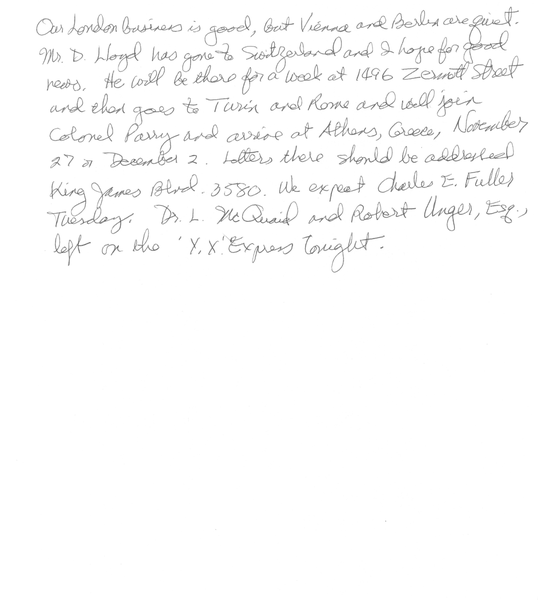 Our London business is good, but Vienna and Berlin are quiet.
Mr. D. Lloyd has gone to Switzerland and I hope for good
news. He will be there for a week at 1496 Zermott Street
and then goes to Turin and Rome and will join
Colonel Parry and arrive at Athens, Greece, November
27 or December 2. Letters there should be addressed
King James Blvd. 3580. We expect Charles E. Fuller
Tuesday. Dr. L. McQuaid and Robert Unger, Esq.,
left on the 'Y.X.' Express tonight.